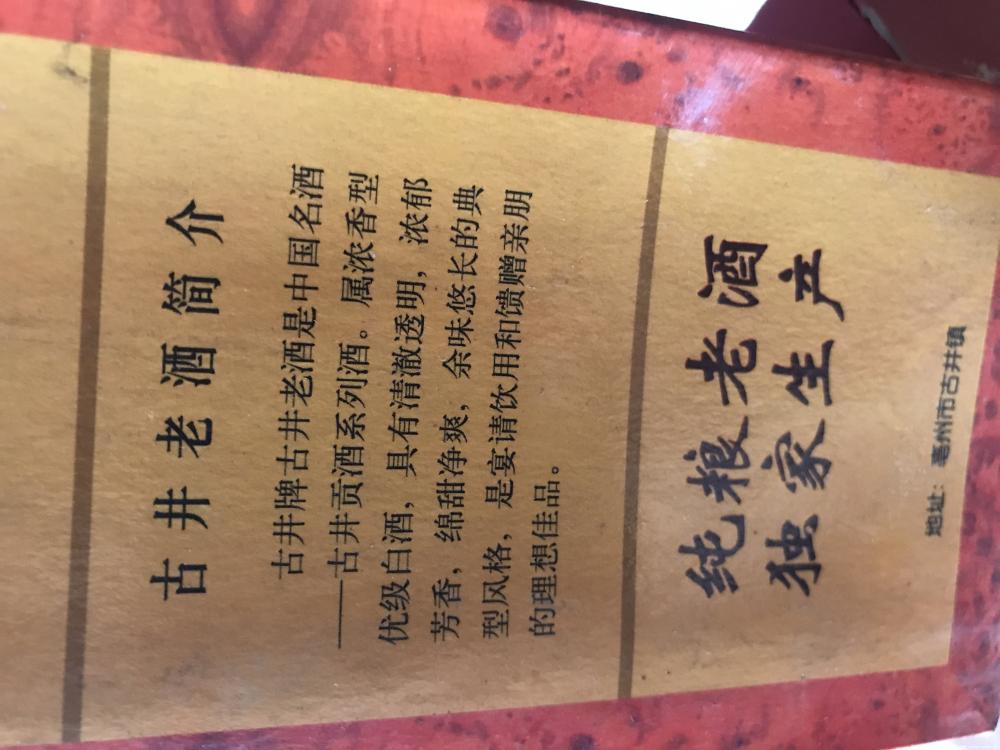 古井老酒简介
古井牌古井老酒是中国名酒
——古井贡酒系列酒。属浓香型
优级白酒，具有清澈透明，浓郁
芳香，绵甜净爽，余味悠长的典
型风格，是宴请饮用和馈赠亲朋
的理想佳品。
纯粮老酒
独家生产
地址：亳州市古井镇